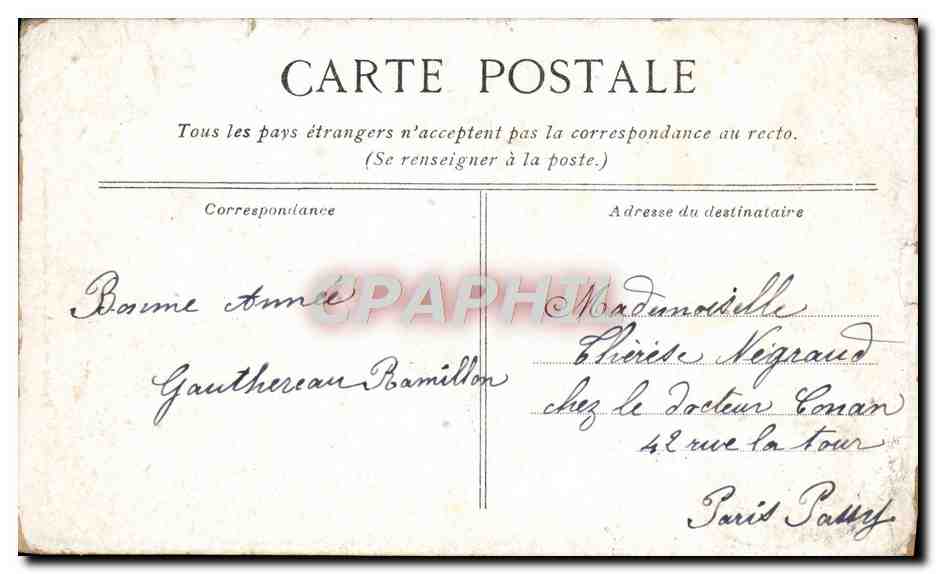 CARTE POSTALE
Tous les pays étrangers n'acceptent pas la correspondance au recto.
(Se renseigner à la poste.)
Correspondance
Bonne Année
Gauthereau Ramillon
Adresse du destinataire
Mademoiselle
Thérèse Négraud
chez le docteur Conan
42 rue la tour
Paris Passy
CPAPHIL